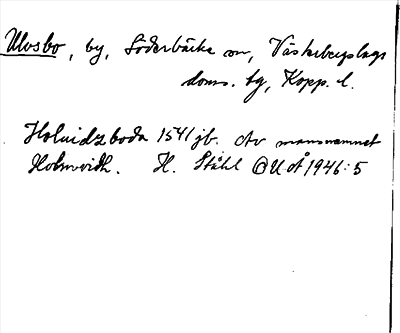 Ulvsbo, by, Söderbärke sn, Västerbergslags
doms. tg, Kopp. l.
Holuidzboda 1541 jb. Av mansnamnet
Holmvidh. H. Ståhl OUÅ 1946:5